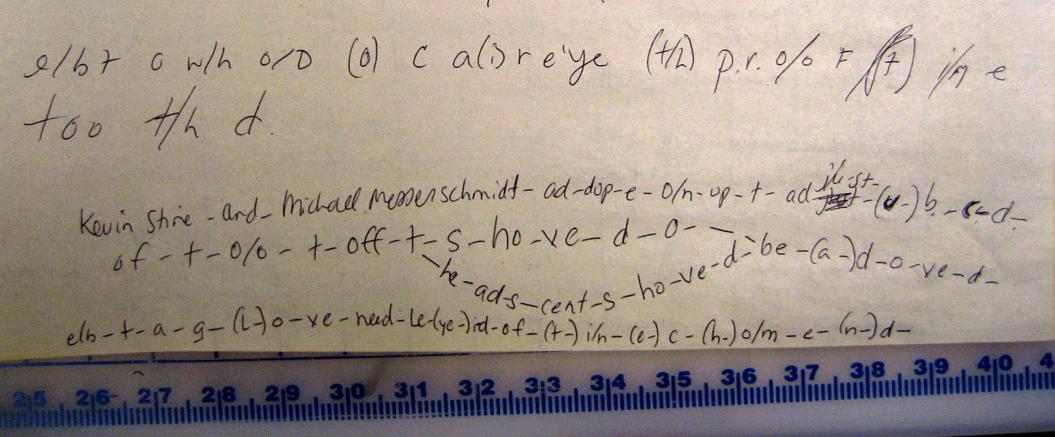 e/b t o w/h o/o (o) c a(s) r e'ye (th) p.r. o/o F (f) i/n e
too t/h d.
Kevin Shire - and - Michael Messerschmidt - ad-dop-e - o/n-up-t- ad ju-st- -(u-) b - d-
of - t - o/o - t - off - t - s - ho - ve - d - o - - d - be - (a-) d - o - ve - d -
he - ad - s - cent - s - ho - ve -
e/b - t - a - g - (l-) o - ve - need - le - (ye-) id - of - (t-) i/n - (e-) c - (h-) o/m - e - (n-) d -
2|5 2|6 2|7 2|8 2|9 3|0 3|1 3|2 3|3 3|4 3|5 3|6 3|7 3|8 3|9 4|0 4